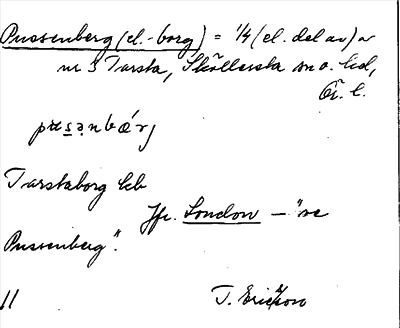 Pussenberg (el. -borg) = 1/4 (el. del av) av
nr 3 Tarsta, Sköllersta sn o. hd,
Ör. l.
Tarstaborg
Jfr. London — "se
Pussenberg".
11 T. Ericsson